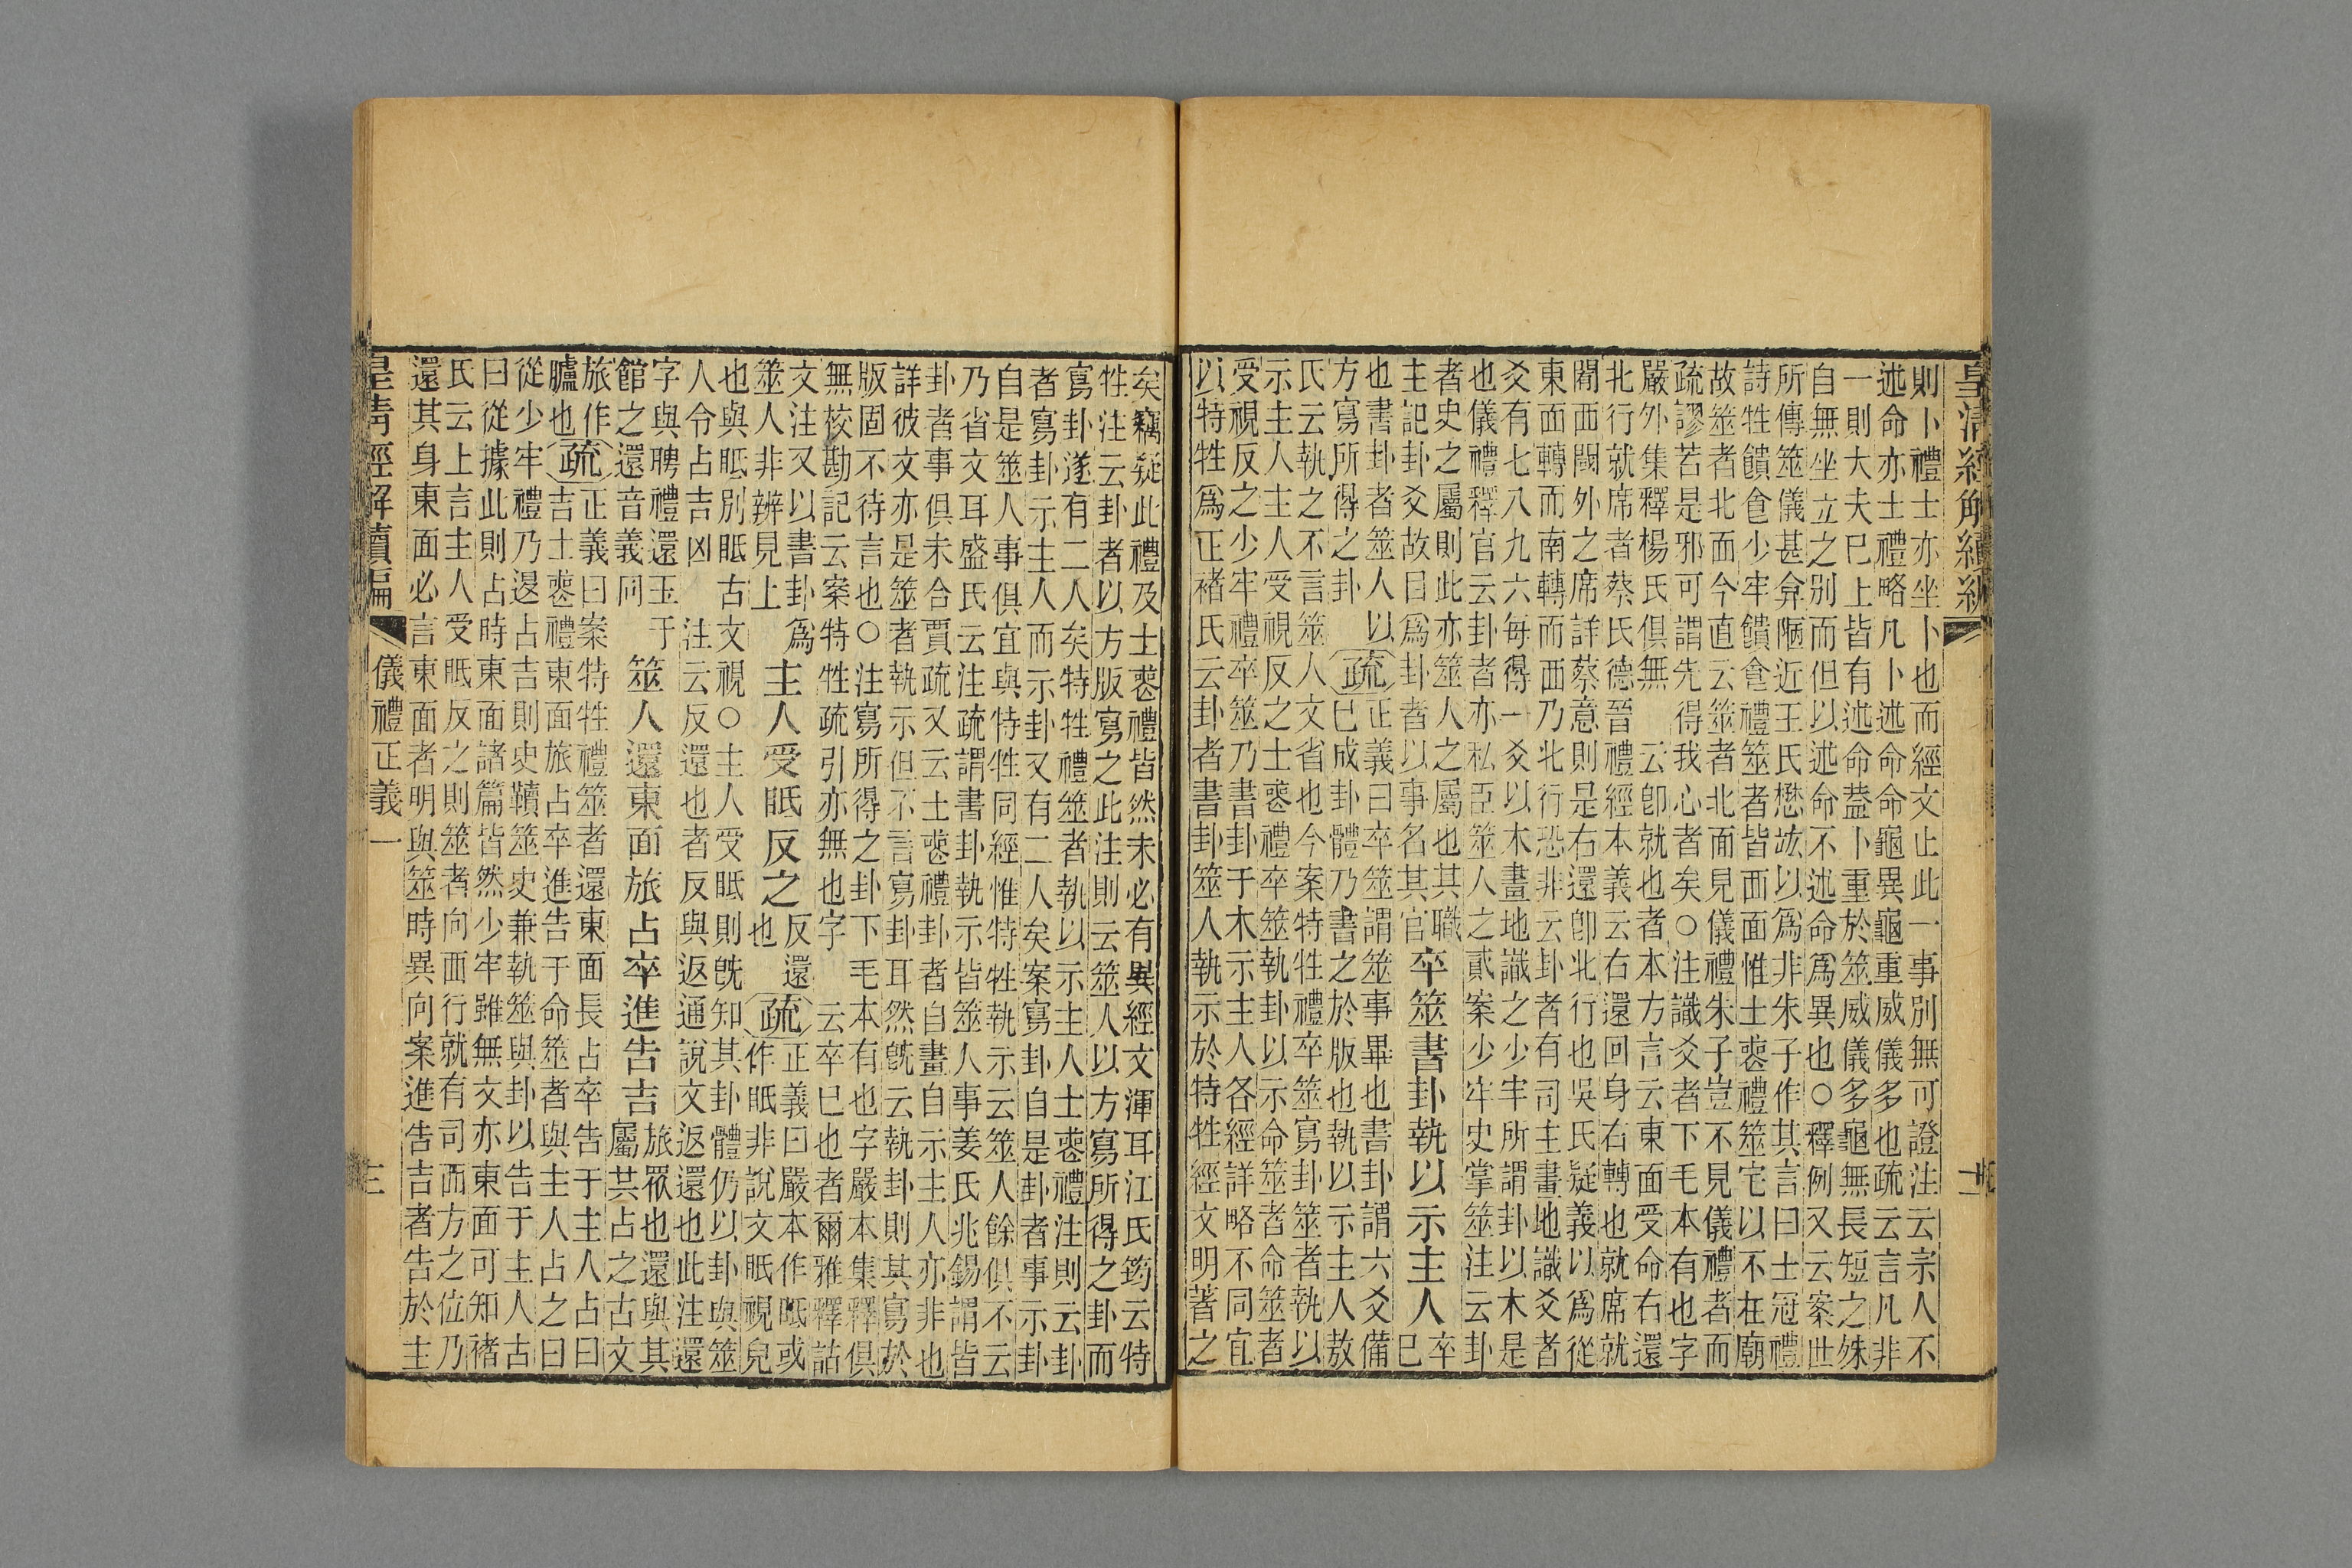 皇清經解續編
則卜禮士亦坐卜也而經文止此一事別無可證注云宗人不
述命亦士禮略凡卜述命命龜異龜重威儀多也疏云言凡非
一則大夫已上皆有述命葢卜重於筮威儀多龜無長短之殊
自無坐立之別而但以述命不述命爲異也○釋例又云案世
所傳筮儀甚弇陋近王氏懋竑以爲非朱子作其言曰士冠禮
詩牲饋食少牢饋食禮筮者皆西面惟士喪禮筮宅以不在廟
故筮者北面今直云筮者北面見儀禮朱子豈不見儀禮者而
疏謬若是邪可謂先得我心者矣○注識爻者下毛本有也字
嚴外集釋楊氏俱無云卽就也者本方言云東面受命右還
北行就席者蔡氏德晉禮經本義云右還回身右轉也就席就
闑西閾外之席詳蔡意則是右還卽北行也吳氏疑義以爲從
東面轉而南轉而西乃北行恐非云卦者有司主畫地識爻者
爻有七八九六每得一爻以木畫地識之少牢所謂卦以木是
也儀禮釋官云卦者亦私臣筮人之貳案少牢史掌筮注云卦
者史之屬則此亦筮人之屬也其職
主記卦爻故目爲卦者以事名其官
卒筮書卦執以示主人
卒
已
也書卦者筮人以
方寫所得之卦
疏
正義曰卒筮謂筮事畢也書卦謂六爻備
已成卦體乃書之於版也執以示主人敖
氏云執之不言筮人文省也今案特牲禮卒筮寫卦筮者執以
示主人主人受視反之士喪禮卒筮執卦以示命筮者命筮者
受視反之少牢禮卒筮乃書卦于木示主人各經詳略不同宐
以特牲爲正褚氏云卦者書卦筮人執示於特牲經文明著之
矣竊疑此禮及士喪禮皆然未必有異經文渾耳江氏筠云特
牲注云卦者以方版寫之此注則云筮人以方寫所得之卦而
寫卦遂有二人矣特牲禮筮者執以示主人士喪禮注則云卦
者寫卦示主人而示卦又有二人矣案寫卦自是卦者事示卦
自是筮人事俱宜與特牲同經惟特牲執示云筮人餘俱不云
乃省文耳盛氏云注疏謂書卦執示皆筮人事姜氏兆錫謂皆
卦者事俱未合賈疏又云士喪禮卦者自畫自示主人亦非也
詳彼文亦是筮者執示但不言寫卦耳然旣云執卦則其寫於
版固不待言也○注寫所得之卦下毛本有也字嚴本集釋俱
無校勘記云案特牲疏引亦無也字云卒已也者爾雅釋詁
文注又以書卦爲
筮人非辨見上
主人受眡反之
反還
也
疏
正義曰嚴本作眡或
作眂非說文眡視皃
也與眡別眂古文視○主人受眡則旣知其卦體仍以卦與筮
人令占吉凶注云反還也者反與返通說文返還也此注還
字與聘禮還玉于
館之還音義同
筮人還東面旅占卒進告吉
旅眾也還與其
屬共占之古文
旅作
臚也
疏
正義曰案特牲禮筮者還東面長占卒告于主人占曰
吉士喪禮東面旅占卒進告于命筮者與主人占之曰
從少牢禮乃退占吉則史韇筮史兼執筮與卦以告于主人占
曰從據此則占時東面諸篇皆然少牢雖無文亦東面可知褚
氏云上言主人受眡反之則筮者向西行就有司西方之位乃
還其身東面必言東面者明與筮時異向案進告吉者告於主
皇清經解續編
儀禮正義一
三